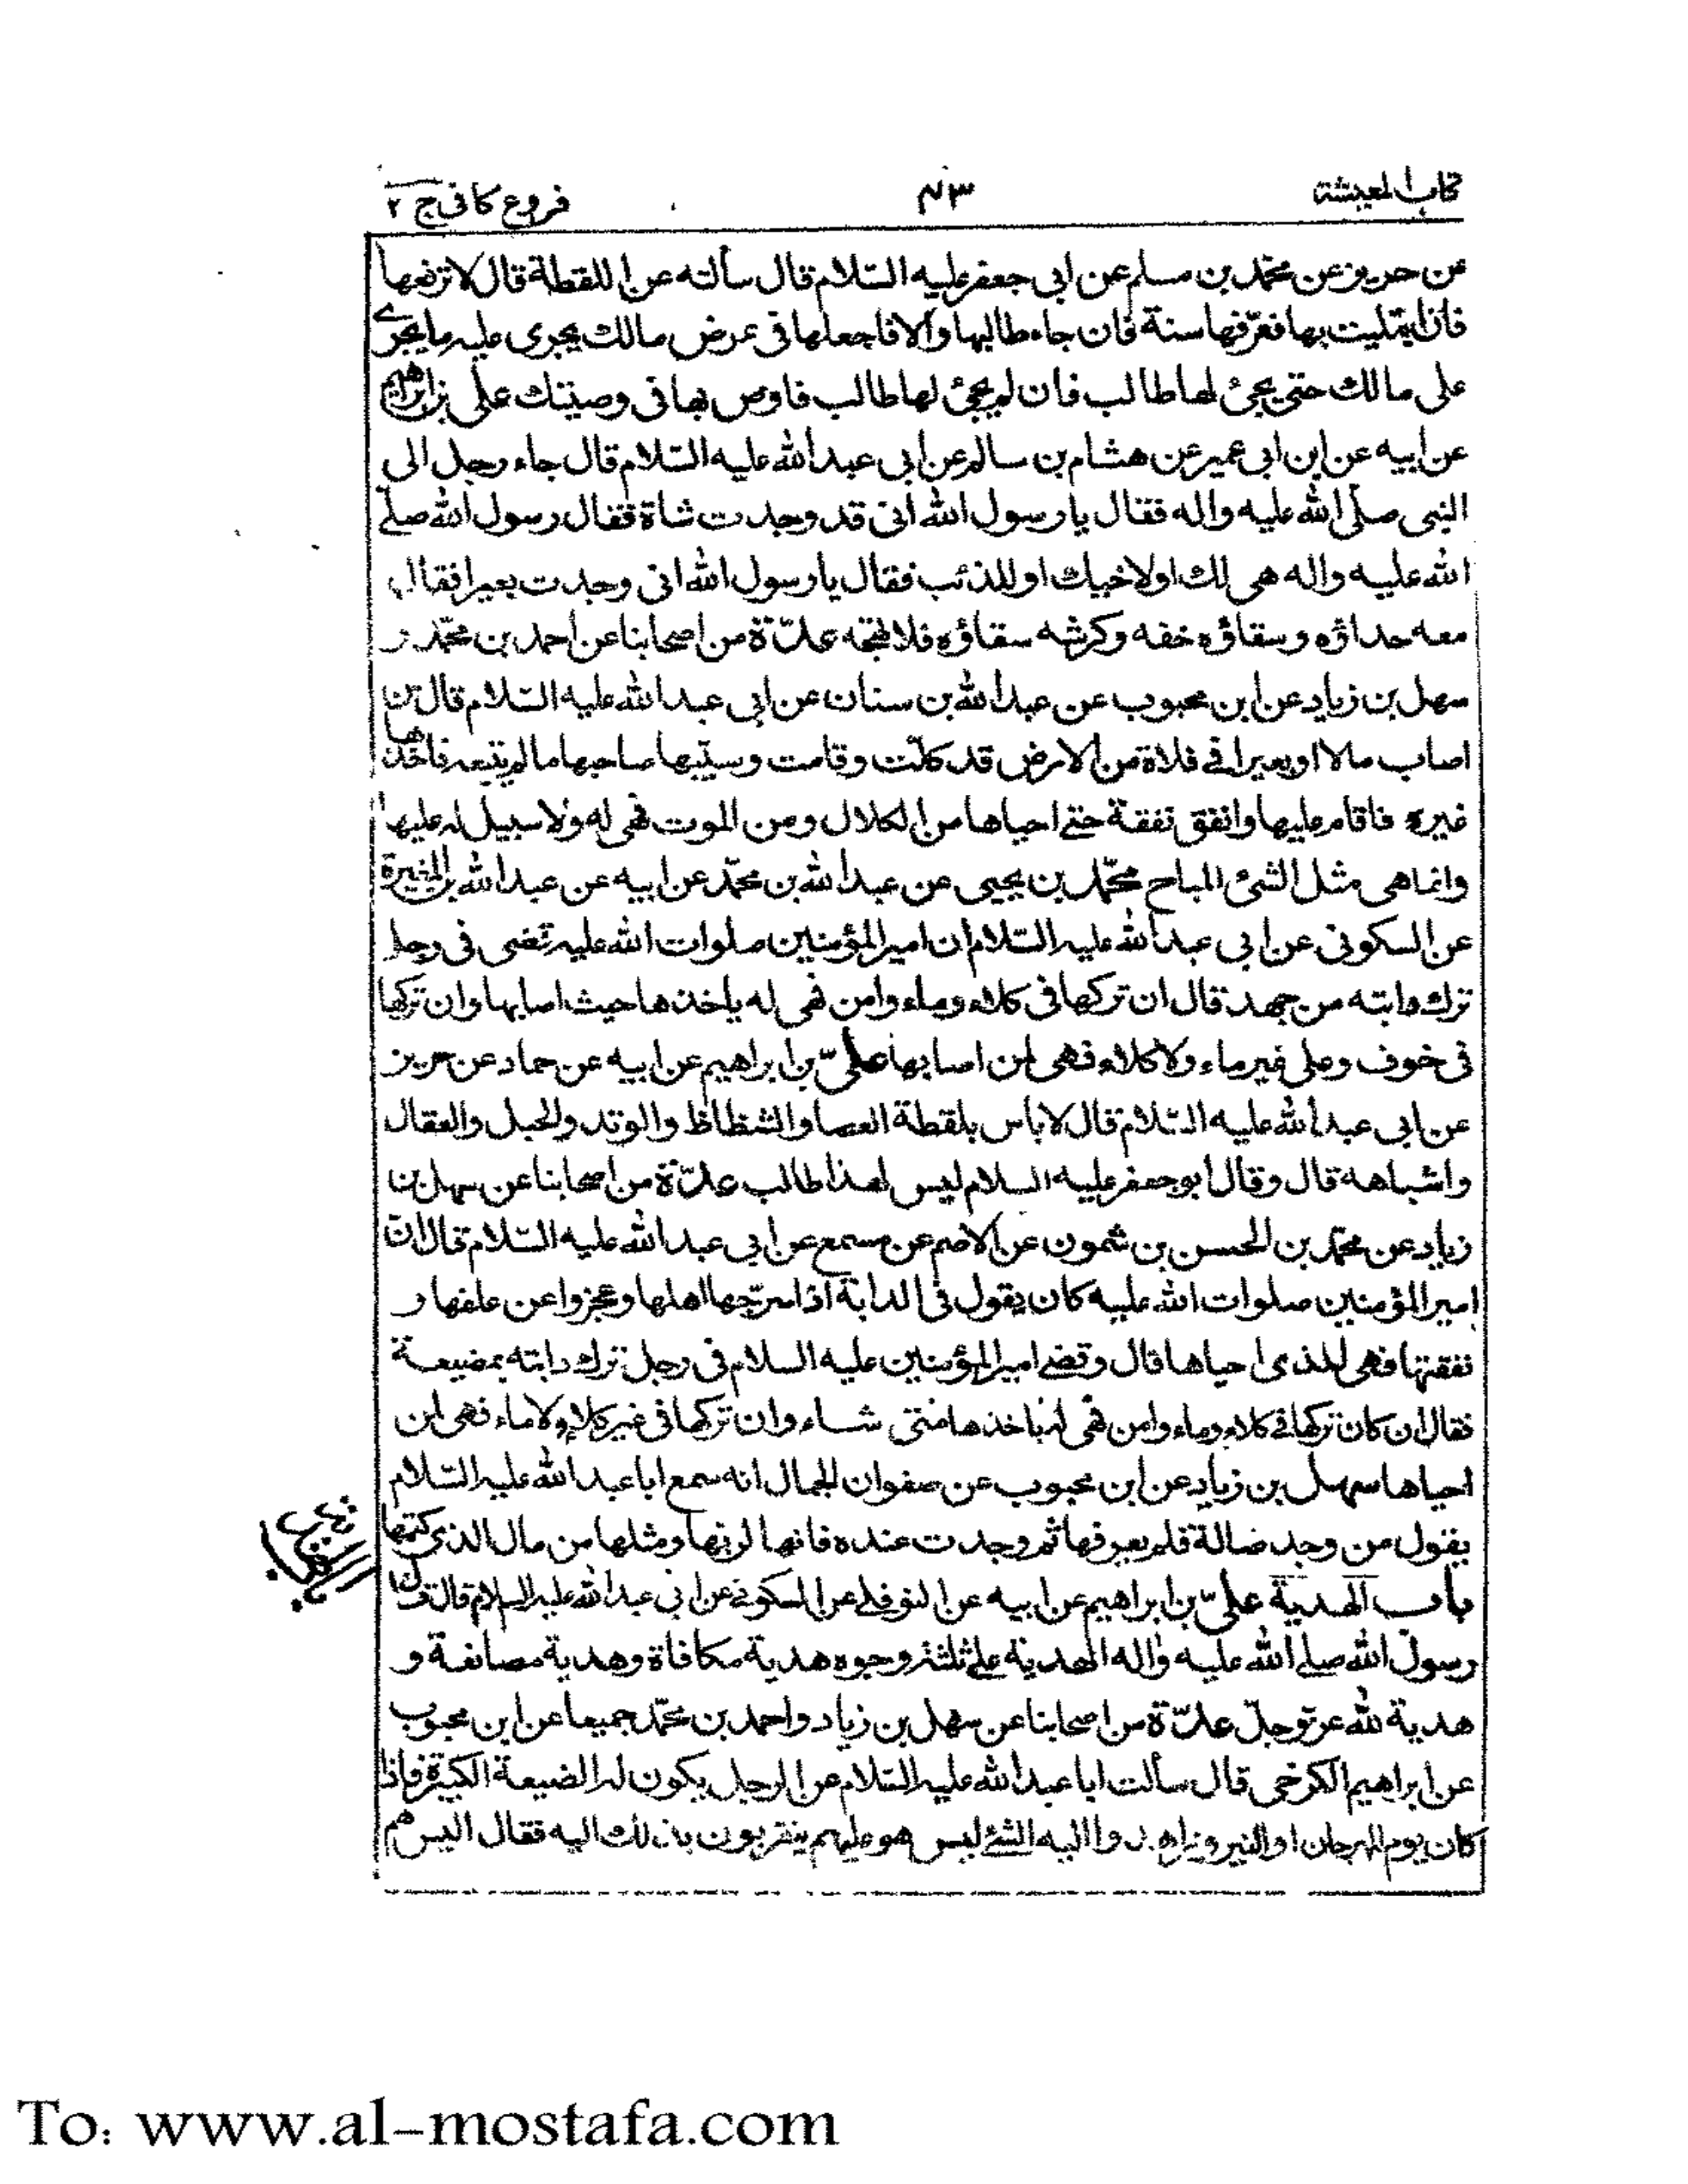 كتاب المعيشة
٣٠٤
فروع كافى ج ٢
عن حريز عن محمّد بن مسلم عن ابى جعفر عليه السّلام قال سألته عن اللقطة قال لا ترفعها
فان ابتليت بها فعرّفها سنة فان جاء طالبها والا فاجعلها فى عرض مالك يجرى عليه ما يجرى
على مالك حتى يجئ لها طالب فان لم يجئ لها طالب فاوص بها فى وصيّتك علىّ بن ابراهيم
عن ابيه عن ابن ابى عمير عن هشام بن سالم عن ابى عبد الله عليه السّلام قال جاء رجل الى
النبى صلّى الله عليه واله فقال يا رسول الله انى قد وجدت شاة فقال رسول الله صلّى
الله عليه واله هى لك او لاخيك او للذئب فقال يا رسول الله انى وجدت بعيرا فقال
معه حذاؤه وسقاؤه خفه وكرشه سقاؤه فلا تهجه عدّة من اصحابنا عن احمد بن محمّد و
سهل بن زياد عن ابن محبوب عن عبد الله بن سنان عن ابى عبد الله عليه السّلام قال من
اصاب مالا او بعيرا فى فلاة من الارض قد كلّت وقامت وسيّبها صاحبها ما لم يتبعه فاخذها
غيره فاقام عليها وانفق نفقة حتى احياها من الكلال ومن الموت فهى له ولا سبيل له عليها
وانما هى مثل الشئ المباح محمّد بن يحيى عن عبد الله بن محمّد عن ابيه عن عبد الله بن المغيرة
عن السكونى عن ابى عبد الله عليه السّلام ان امير المؤمنين صلوات الله عليه قضى فى رجل
ترك دابته من جهد قال ان تركها فى كلاء وماء وامن فهى له ياخذها حيث اصابها وان تركها
فى خوف وعلى غير ماء ولا كلاء فهى لمن اصابها علىّ بن ابراهيم عن ابيه عن حماد عن حريز
عن ابى عبد الله عليه السّلام قال لا باس بلقطة العصا والشظاظ والوتد والحبل والعقال
واشباهه قال وقال ابو جعفر عليه السلام ليس لهذا طالب عدّة من اصحابنا عن سهل بن
زياد عن محمّد بن الحسن بن شمون عن الاصم عن مسمع عن ابى عبد الله عليه السّلام قال ان
امير المؤمنين صلوات الله عليه كان يقول فى الدابة اذا سرّحها اهلها وعجزوا عن علفها و
نفقتها فهى للذى احياها قال وقضى امير المؤمنين عليه السلام فى رجل ترك دابته بمضيعة
فقال ان كان تركها فى كلاء وماء وامن فهى له ياخذها متى شاء وان تركها فى غير كلاء ولا ماء فهى لمن
احياها سهل بن زياد عن ابن محبوب عن صفوان الجمال انه سمع ابا عبد الله عليه السّلام
يقول من وجد ضالة فلم يعرفها ثم وجدت عنده فانها لربها ومثلها من مال الذى كتمها
باب الهدية علىّ بن ابراهيم عن ابيه عن النوفلى عن السكونى عن ابى عبد الله عليه السلام قال قال
رسول الله صلى الله عليه واله الهدية على ثلثة وجوه هدية مكافاة وهدية مصانعة و
هدية لله عزّ وجلّ عدّة من اصحابنا عن سهل بن زياد واحمد بن محمّد جميعا عن ابن محبوب
عن ابراهيم الكرخى قال سألت ابا عبد الله عليه السّلام عن الرجل يكون له الضيعة الكبيرة فاذا
كان يوم المهرجان او النيروز اهدوا اليه الشئ ليس هو عليهم يتقربون بذلك اليه فقال اليس هم
To: www.al-mostafa.com